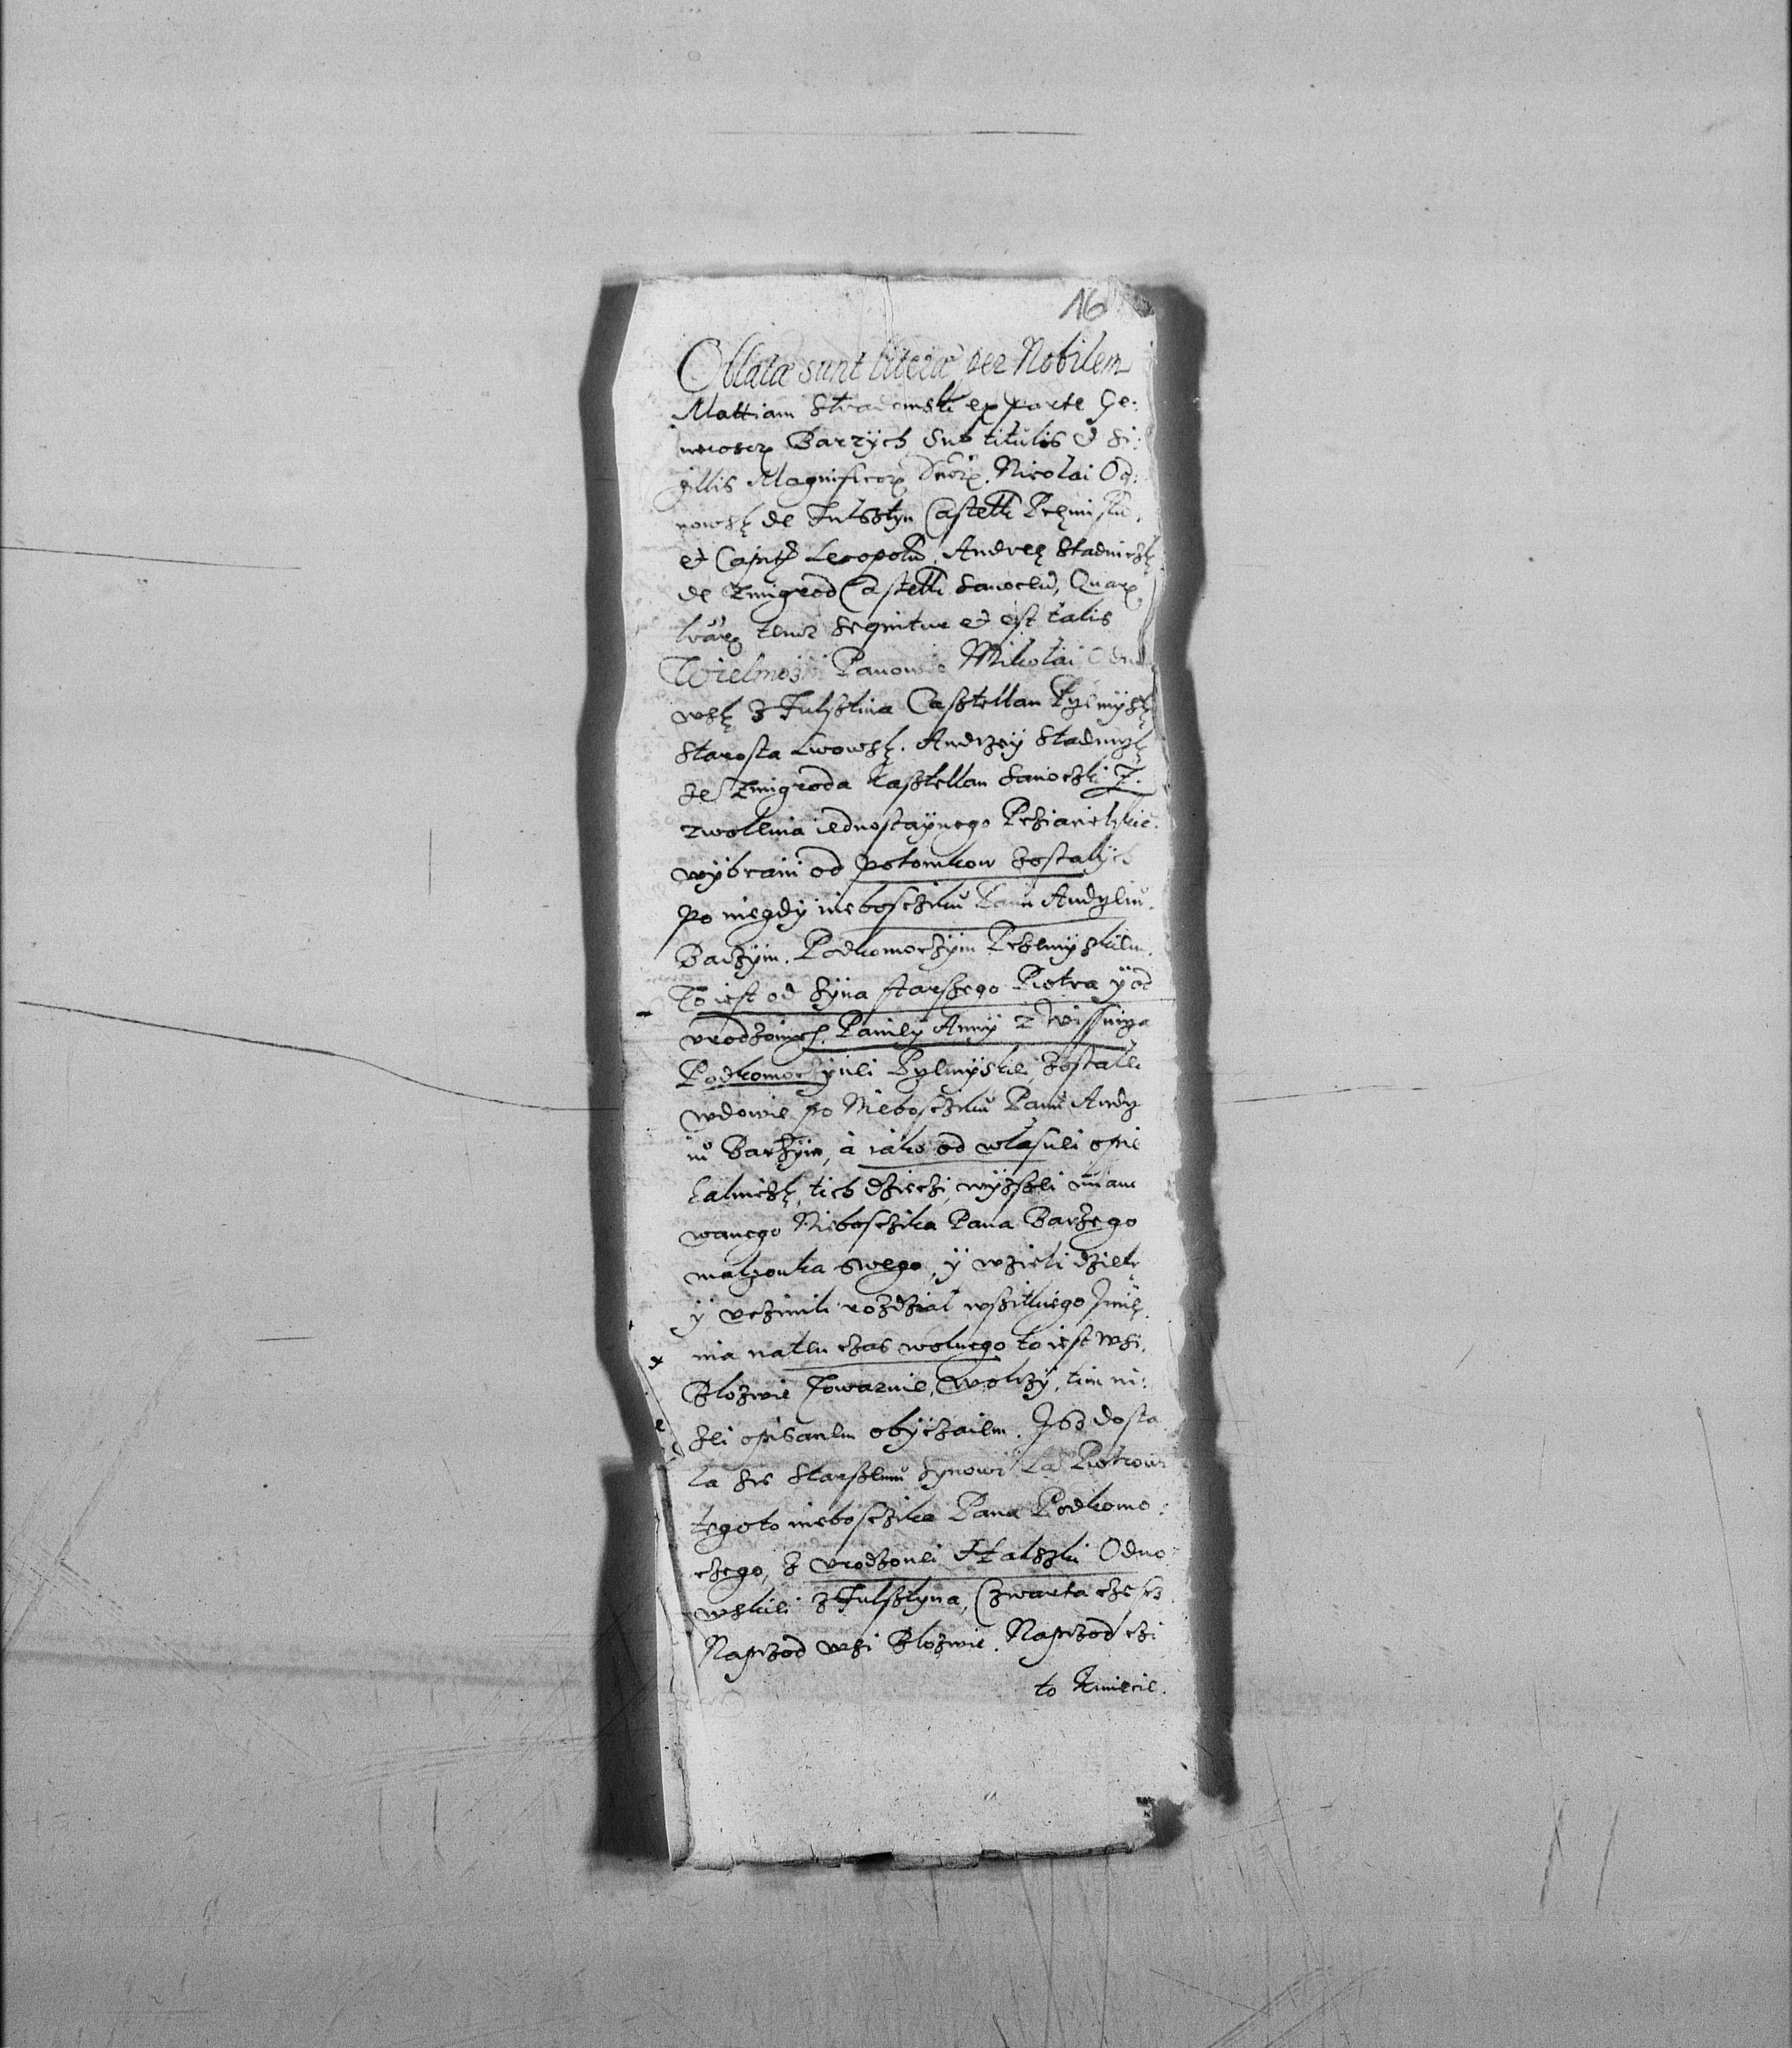 16
Oblatae sunt literae per Nobilem
Mattiam Stradomski ex parte Ge:
nerosor Barzÿch Sub titulis et Si:
gillis Magnificor Dnor. Nicolai Od:
nowsk de Fulsztyn Castelli Przmisłn.
et Capit Leopoln. Andreę Stadniczk
de Zmigrod Castelli Sanocen, Quar
lrar tenor sequitur et est talis
Wielmożni Panowie Mikołai Odno
wsk z Fulsztina Casztellan Pzemÿsk
Starosta Lwowsk. Andrzeÿ Stadnyczk
ze Zmigroda Kasztellan Sanoczki Z.
zwolenia iednostaÿnego Prziacielskie.
wÿbrani od potomkow zostałÿch
po niegdÿ nieboszczikú Panú Andrzeiú.
Barzÿm. Podkomorzÿm Przemÿskim.
To iest od Sÿna starszego Piotra ÿ od
vrodzonei Panieÿ Annÿ z Wissnicza
Podkomorzÿnei Pzemÿskiei, zostałei
wdowie po Nieboszczikú Panú Andrze
iú Barzÿm, à iako od własnei opie
kalniczki tich dzieczi, wÿzszei mian
wanego Nieboszczika Pana Barzego
małzonka swego, ÿ wzieli dzielr
ÿ vczinili rozdział wszitkiego Jmię.
nia na ten czas wolnego to iest wsi.
Błozwie Towarnie, Wolczÿ, tim ni:
zei opisanem obÿczaiem. Jsz dosta
ła sie starszemú Sÿnowi Piotrowi
tego to nieboszczika Pana Podkomo:
rzego, z vrodzonei Halszki Odno
wskiei z Fulsztyna, Czwarta częscz
Naprzod wsi Błozwie. Naprzod czi
to Kmiecie.